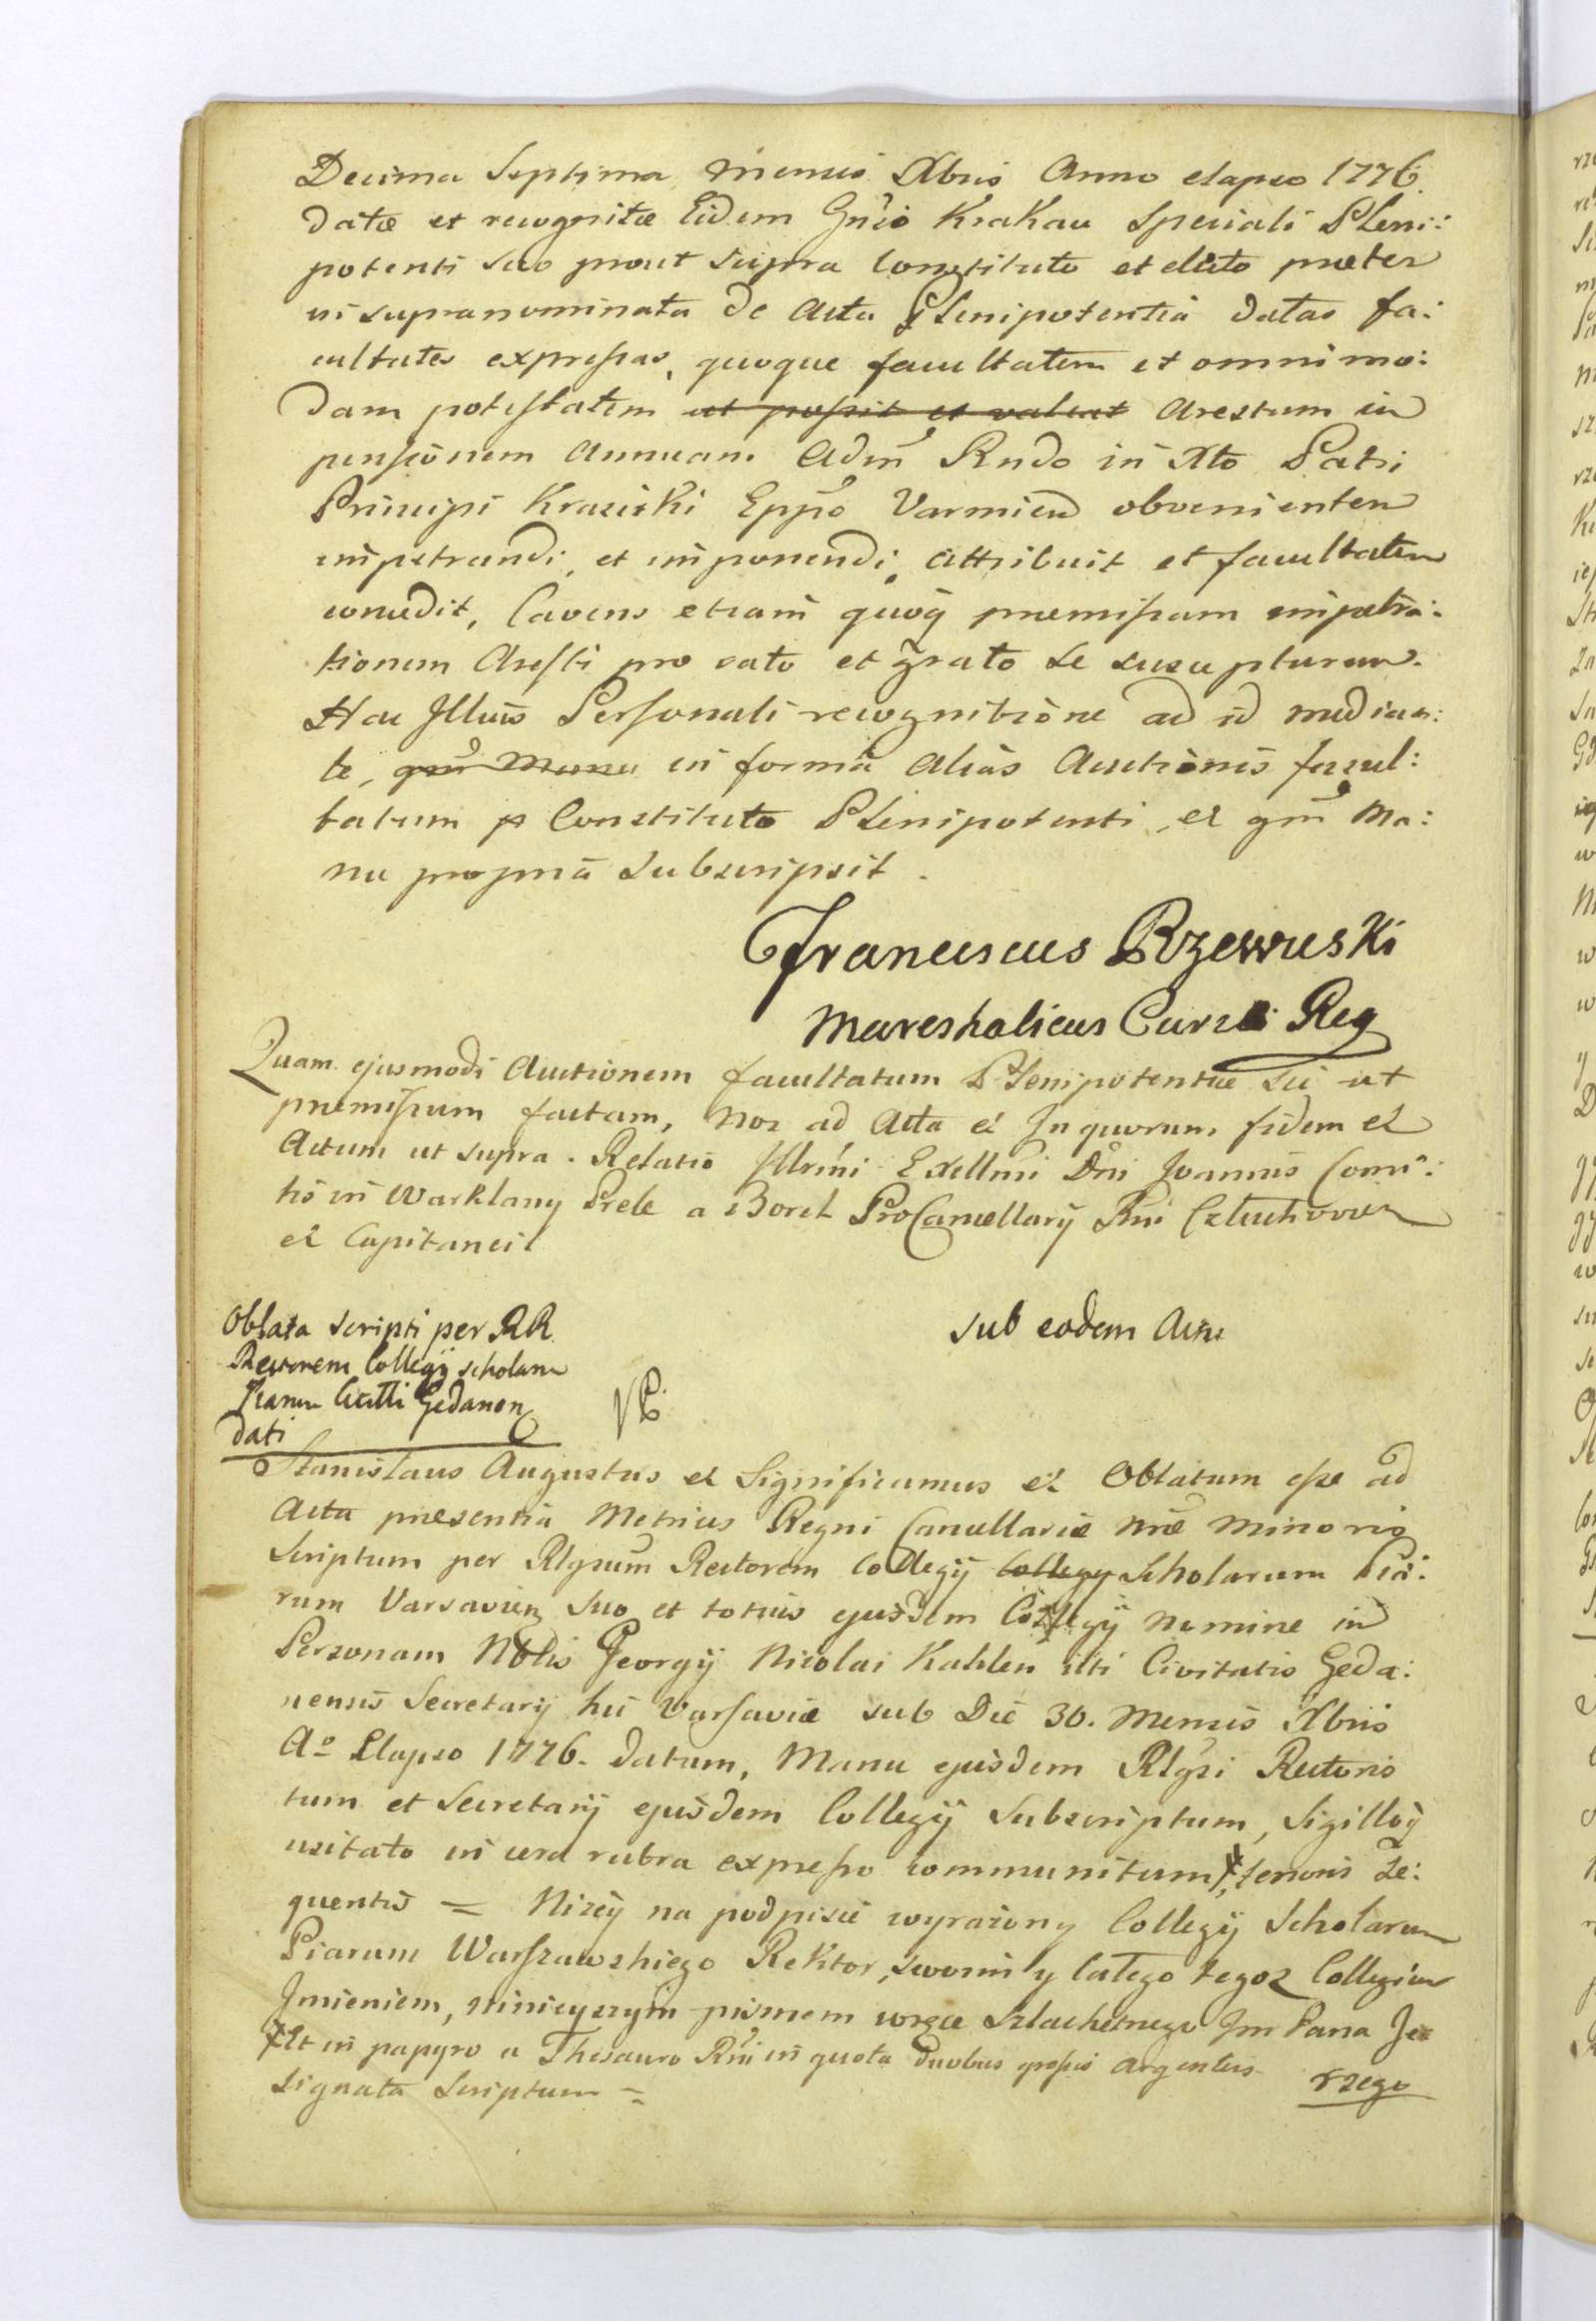 Decima Septima mensis Xbris Anno elapso 1776.
datæ et recognitæ Eidem Gnso Krakau Speciali Pleni:
potenti suo prout supra Constituto et dicto præter
in supranominata de Acta Plenipotentia datas fa:
cultates expressas, quoque facultatem et omnimo:
dam potestatem ut possit et valeat Arestum in
pensionem Annuam Adm Rndo in Xto Patri
Principi Krasicki Eppo Varmien obvenientem
impetrandi, et imponendi, attribuit et facultatem
concedit, Cavens etiam quoq præmissam impetra:
tionem Aresti pro rato et grato se suscepturum.
Hac Illius Personali recognitione ad id median:
te, in forma alias Auctionis facul:
tatum p Constituto Plenipotenti, et gm Ma:
nu propria Subscripsit.
Franciscus Rzewuski
Mareshalicus Curiæ Reg
Quam ejusmodi Auctionem facultatum Plenipotentiæ Sui ut
præmissum factam, Nos ad Acta et In quorum fidem et
Actum ut supra. Relatio Illrmi Exellmi Dni Joannis Comi:
tis in Warklany Prele a Borch ProCancellarij Rni Człuchovien
et Capitanei
Oblata scripti per RR.
Rectorem Collegij scholarum
Piarum Gedanen
dati
Sub eodem Actu
Stanislaus Augustus et Significamus et Oblatum esse ad
Acta præsentia Metrices Regni Cancellariæ nræ minoris
Scriptum per Rlgsum Rectorem Collegij Collegij Scholarum Pia:
rum Varsavien suo et totius ejusdem Collegij nomine in
Personam Nblis Georgij Nicolai Kahlen Civitatis Geda:
nensis Secretarij hic Varsaviæ sub Die 30. Mensis Xbris
Aº Elapso 1776. datum, Manu ejusdem Rlgsi Rectoris
tum et Secretarij ejusdem Collegij Subscriptum, Sigilloq
usitato in cera rubra expresso communitum, tenoris Se:
quentis = Niżey na podpisie wyrażony Collegij Scholarum
Piarum Warszawskiego Rektor, swoim y całego tegoż Collegium
Jmieniem, ninieyszym pismem w ręce Szlachetnego Jm Pana Je
Et in papyro a Thesauro Rni in quota duobus grossis argenteis
signata Scriptum =
rzego